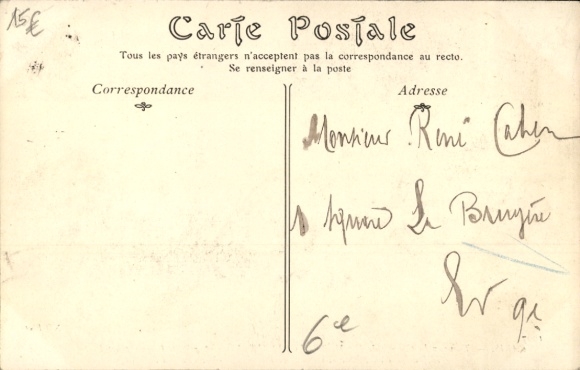 15€
Carte Postale
Tous les pays étrangers n'acceptent pas la correspondance au recto.
Se renseigner à la poste
Correspondance
Adresse
Monsieur René Cahen
1 square La Bruyère
6e